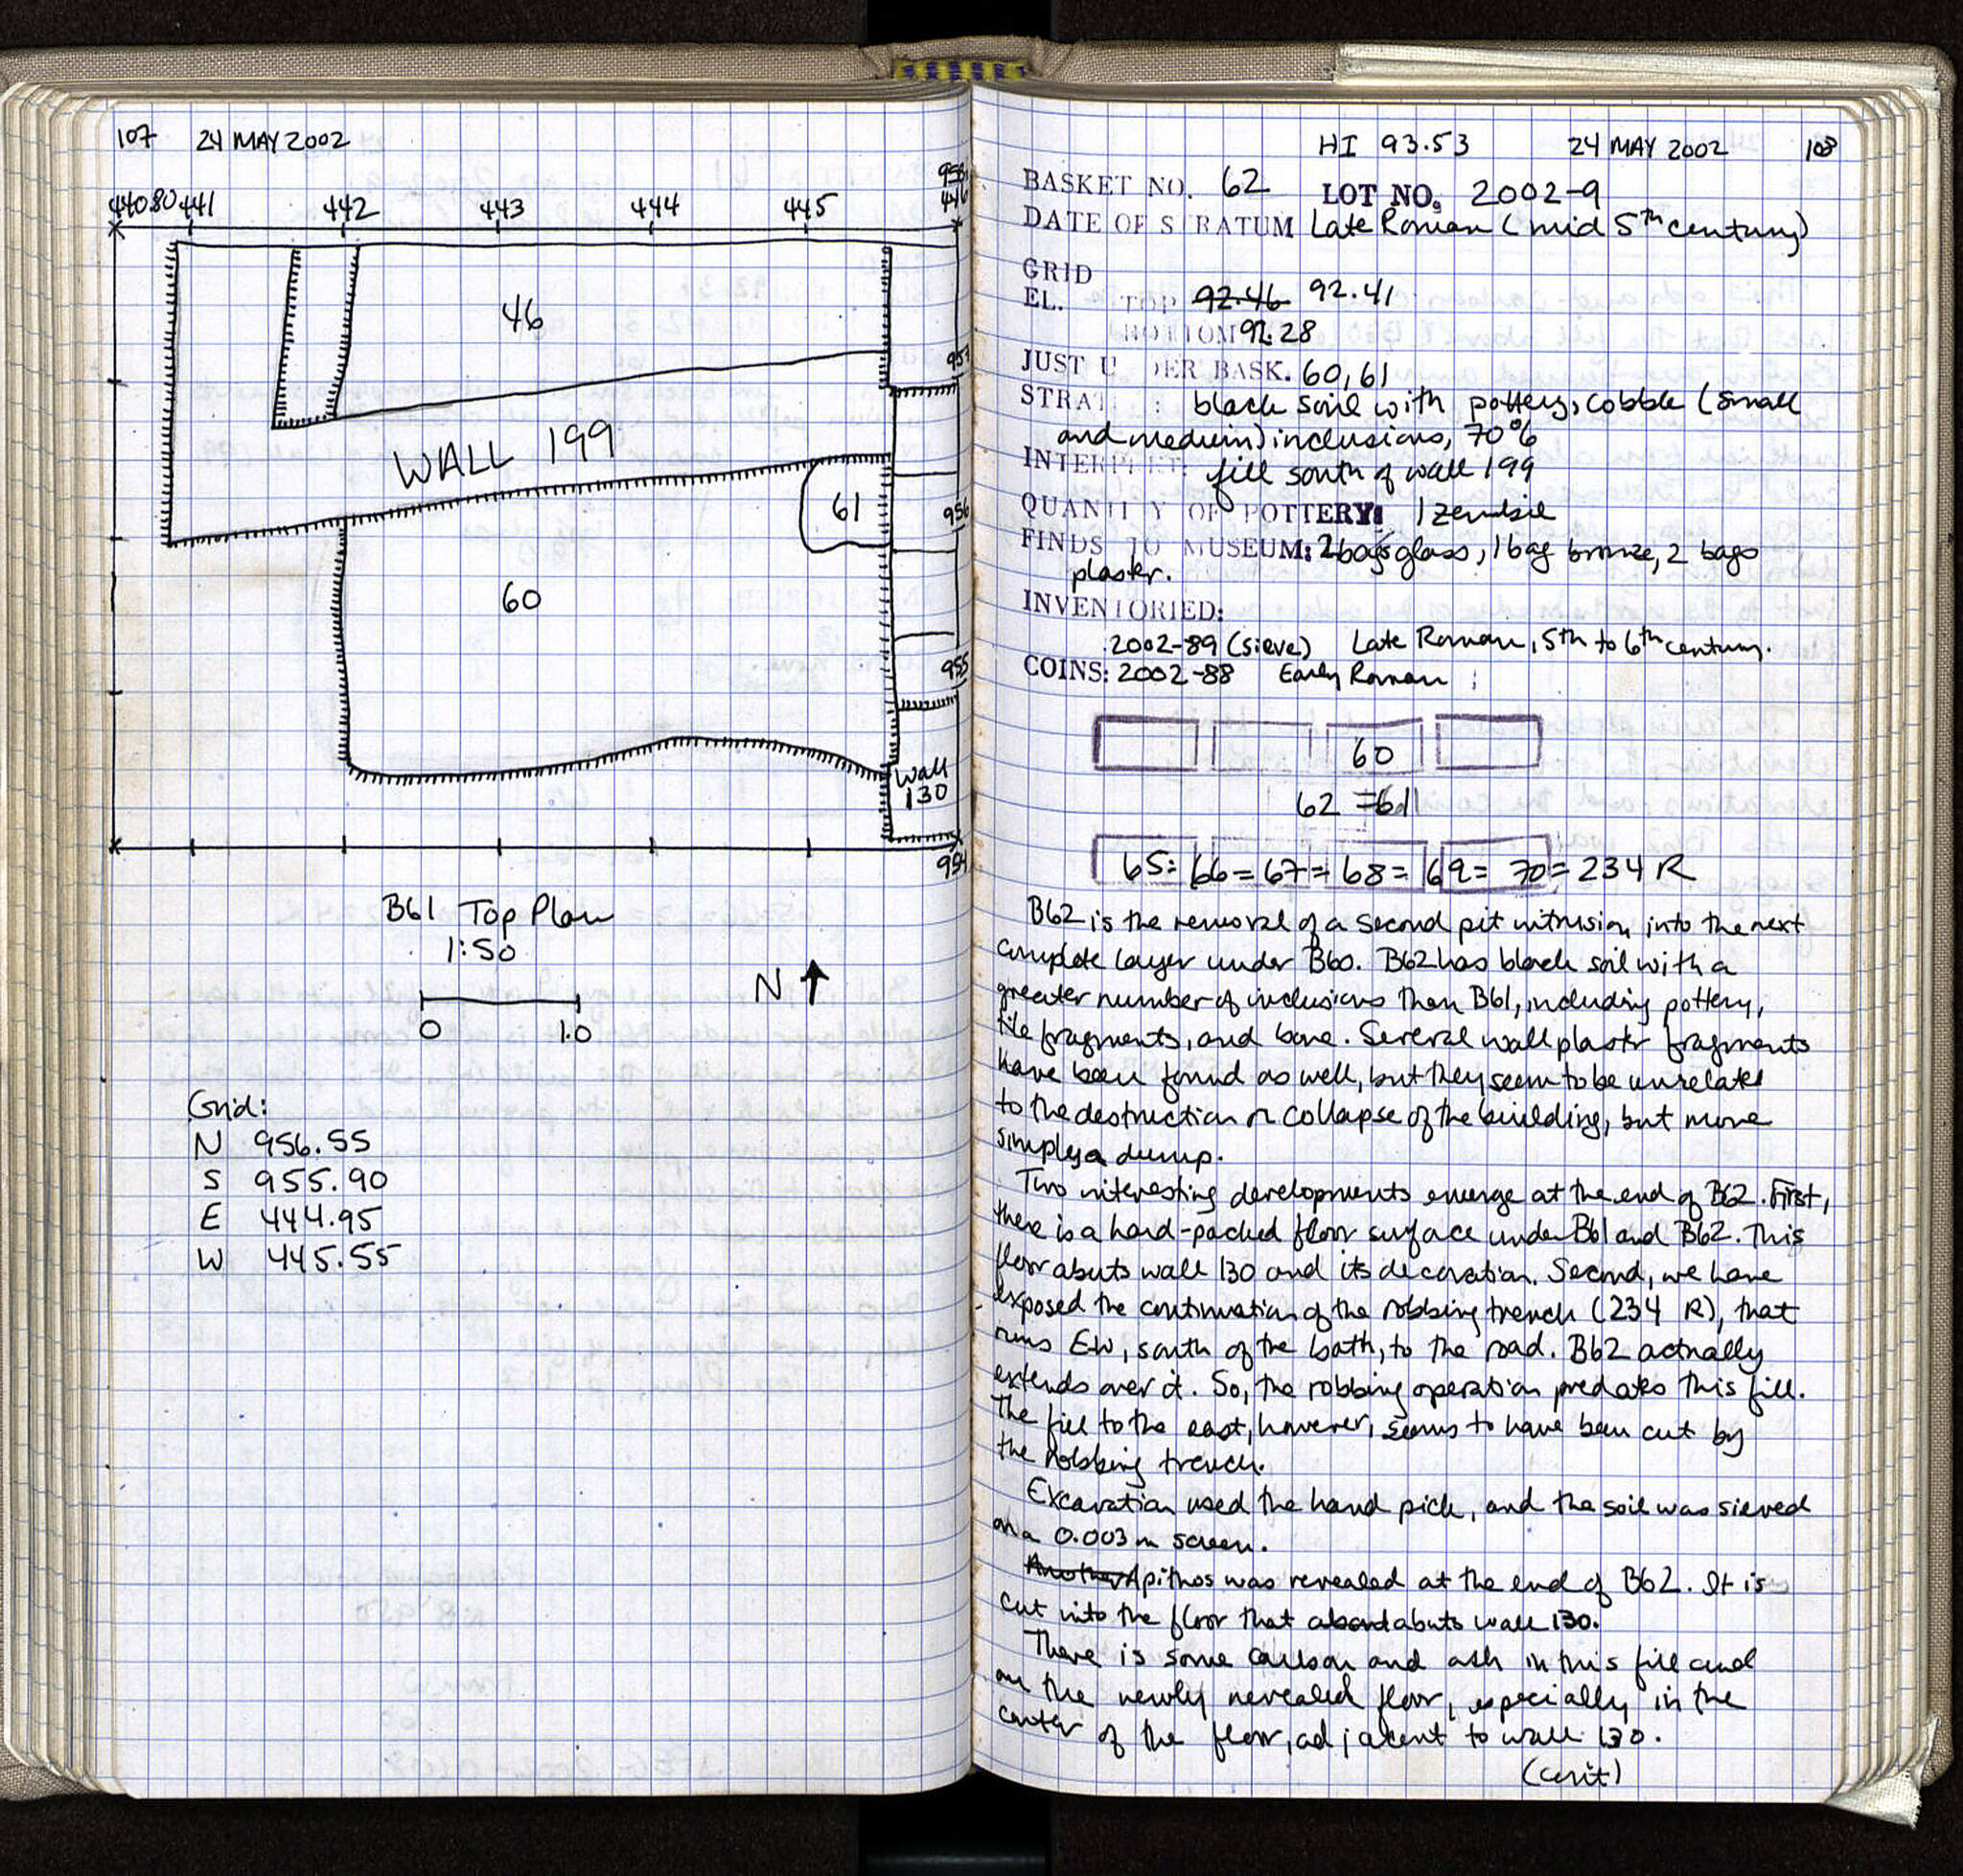 107 24 MAY 2002
440.80 441 442 443 444 445 446
958
46
957
WALL 199
61
956
60
955
Wall
130
954
B61 Top Plan
1:50
N
0 1.0
Grid:
N 956.55
S 955.90
E 444.95
W 445.55
HI 93.53 24 MAY 2002 108
BASKET NO. 62 LOT NO. 2002-9
DATE OF STRATUM Late Roman (mid 5th century)
GRID
EL. TOP 92.46 92.41
BOTTOM 92.28
JUST U DER BASK. 60, 61
STRAT : black soil with pottery, cobble (small
and medium) inclusions, 70%
INTERPRET: fill south of wall 199
QUANTITY OF POTTERY: 1 zembile
FINDS TO MUSEUM: 2 bags glass, 1 bag bronze, 2 bags
plaster.
INVENTORIED:
2002-89 (sieve) Late Roman, 5th to 6th century.
COINS: 2002-88 Early Roman
60
62 = 61
65= 66= 67= 68= 69= 70= 234 R
B62 is the removal of a second pit intrusion into the next
complete layer under B60. B62 has black soil with a
greater number of inclusions than B61, including pottery,
tile fragments, and bone. Several wall plaster fragments
have been found as well, but they seem to be unrelated
to the destruction or collapse of the building, but more
simply a dump.
Two interesting developments emerge at the end of B62. First,
there is a hard-packed floor surface under B61 and B62. This
floor abuts wall 130 and its decoration. Second, we have
exposed the continuation of the robbing trench (234 R), that
runs EW, south of the bath, to the road. B62 actually
extends over it. So, the robbing operation predates this fill.
The fill to the east, however, seems to have been cut by
the robbing trench.
Excavation used the hand pick, and the soil was sieved
on a 0.003 m screen.
Another A pithos was revealed at the end of B62. It is
cut into the floor that abuts wall 130.
There is some carbon and ash in this fill and
on the newly revealed floor, especially in the
center of the floor, adjacent to wall 130.
(cont)